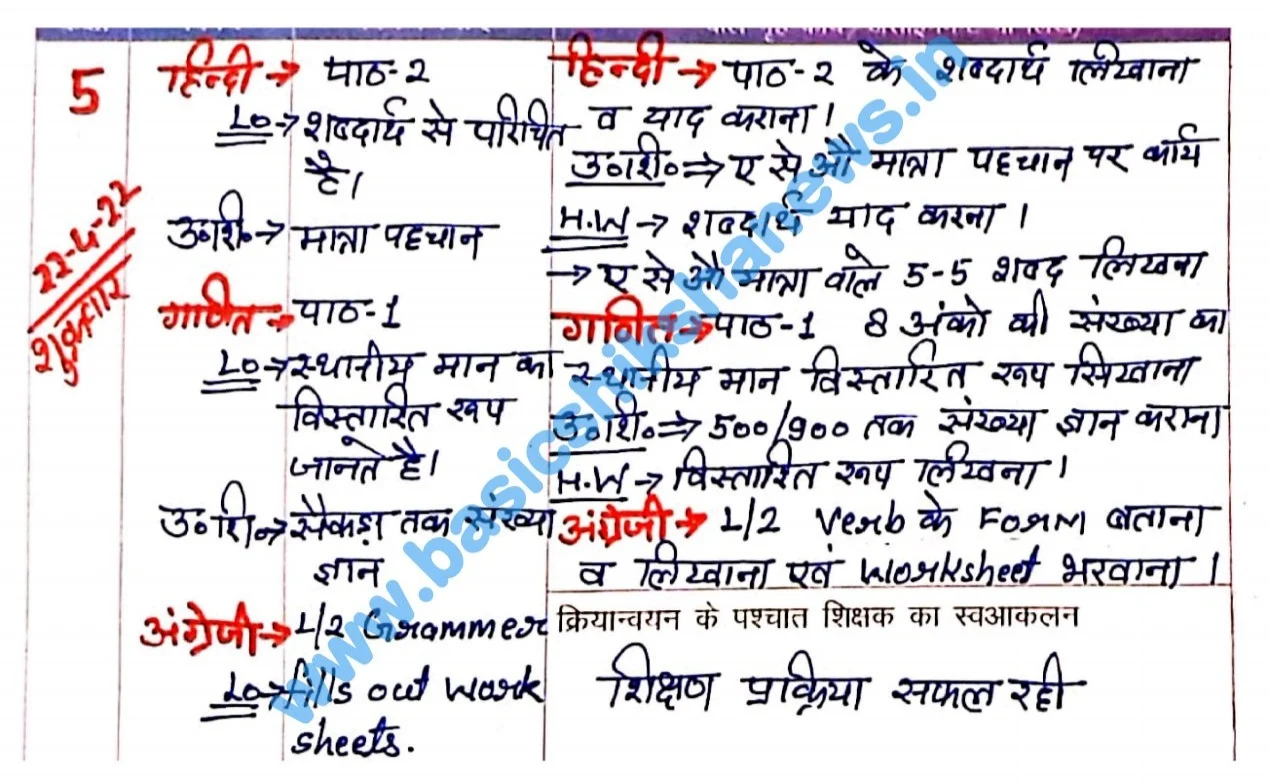 5
22-4-22
शुक्रवार
हिन्दी → पाठ-2
LO → शब्दार्थ से परिचित
है।
उ०शि० → मात्रा पहचान
गणित → पाठ-1
LO → स्थानीय मान का
विस्तारित रूप
जानते है।
उ०शि० → सैकड़ा तक संख्या
ज्ञान
अंग्रेजी → L/2 Grammer
LO → fills out work
sheets.
हिन्दी → पाठ-2 के शब्दार्थ लिखाना
व याद कराना।
उ०शि० ⇒ ए से औ मात्रा पहचान पर कार्य
H.W → शब्दार्थ याद करना।
→ ए से औ मात्रा वाले 5-5 शब्द लिखना
गणित → पाठ-1 8 अंको की संख्या का
स्थानीय मान विस्तारित रूप सिखाना
उ०शि० ⇒ 500/900 तक संख्या ज्ञान कराना
H.W → विस्तारित रूप लिखना।
अंग्रेजी → L/2 Verb के Form बताना
व लिखाना एवं Worksheet भरवाना।
क्रियान्वयन के पश्चात शिक्षक का स्वआकलन
शिक्षण प्रक्रिया सफल रही
www.basicshikshanews.in